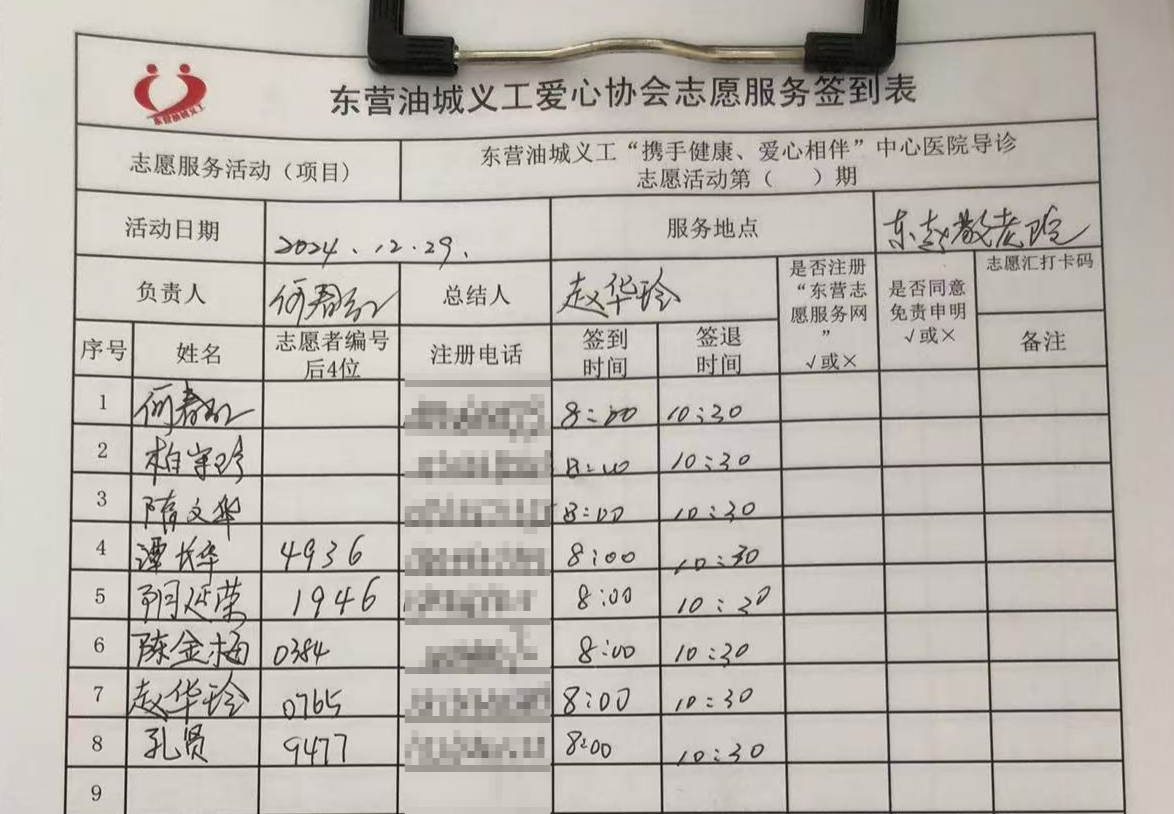 东营油城义工
东营油城义工爱心协会志愿服务签到表
志愿服务活动（项目）
东营油城义工“携手健康、爱心相伴”中心医院导诊
志愿活动第（ ）期
活动日期
2024.12.29.
服务地点
东赵敬老院
负责人
总结人
赵华玲
是否注册
“东营志
愿服务网
”
√或×
是否同意
免责申明
√或×
志愿汇打卡码
备注
序号
姓名
志愿者编号
后4位
注册电话
签到
时间
签退
时间
1
8:00 10:30
2
8:00 10:30
3 隋文华
8:00 10:30
4 谭长华 4936
8:00 10:30
5
1946
8:00 10:30
6 陈金梅 0384
8:00 10:30
7 赵华玲 0765
8:00 10:30
8 孔贤 9477
8:00 10:30
9